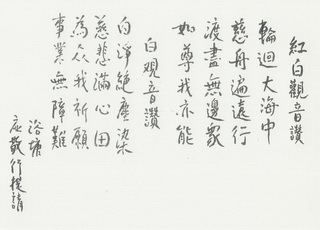 紅白觀音讚
輪迴大海中
慈舟遍遠行
渡盡無邊眾
如尊我亦能
白观音讚
白淨絕塵染
慈悲滿心田
為众我祈願
事業無障難
洛塘
应敬行提請